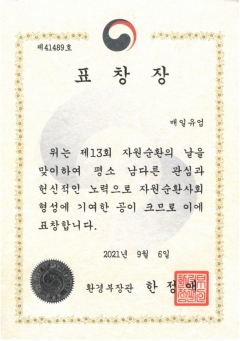 제41489호
표 창 장
매일유업
위는 제13회 자원순환의 날을
맞이하여 평소 남다른 관심과
헌신적인 노력으로 자원순환사회
형성에 기여한 공이 크므로 이에
표창합니다.
2021년 9월 6일
환경부장관 한 정 애